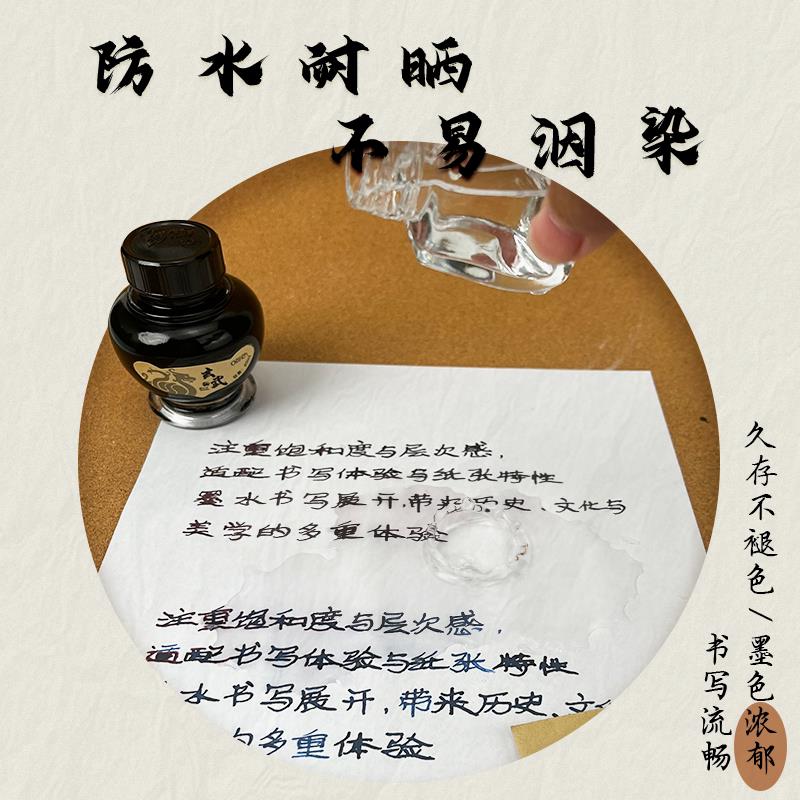 防水耐晒
不易洇染
久存不褪色/墨色浓郁
书写流畅
玄武
注重饱和度与层次感,
适配书写体验与纸张特性
墨水书写展开,带来历史、文化与
美学的多重体验
注重饱和度与层次感,
适配书写体验与纸张特性
水书写展开,带来历史、文
多重体验